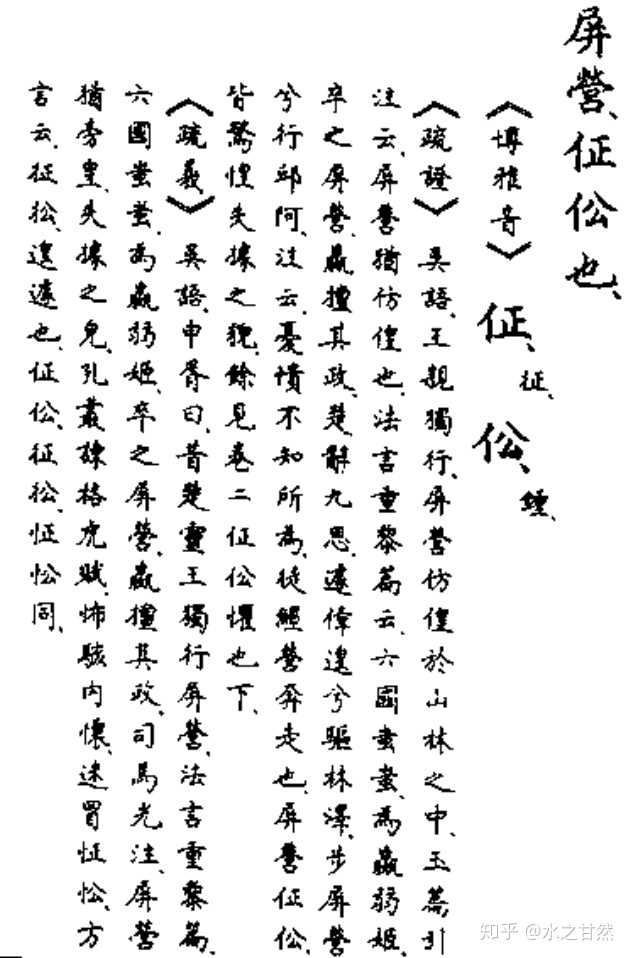 屏營、佂伀也、
《博雅音》佂、征、伀、鍾、
《疏證》吳語、王親獨行、屏營仿偟於山林之中、玉篇引
注云、屏營猶仿偟也、法言重黎篇云、六國蚩蚩、爲嬴弱姬、
卒之屏營、嬴擅其政、楚辭九思、遽傽遑兮驅林澤、步屏營
兮行邱阿、注云、憂憒不知所爲、徒經營奔走也、屏營佂伀、
皆驚惶失據之貌、餘見卷二佂伀懼也下、
《疏義》吳語、申胥曰、昔楚靈王獨行屏營、法言重黎篇、
六國蚩蚩、爲嬴弱姬、卒之屏營、嬴擅其政、司馬光注、屏營
猶旁皇、失據之皃、孔叢諫格虎賦、怖駭内懷、迷冒怔忪、方
言云、征伀、遑遽也、佂伀、征伀、怔忪同、